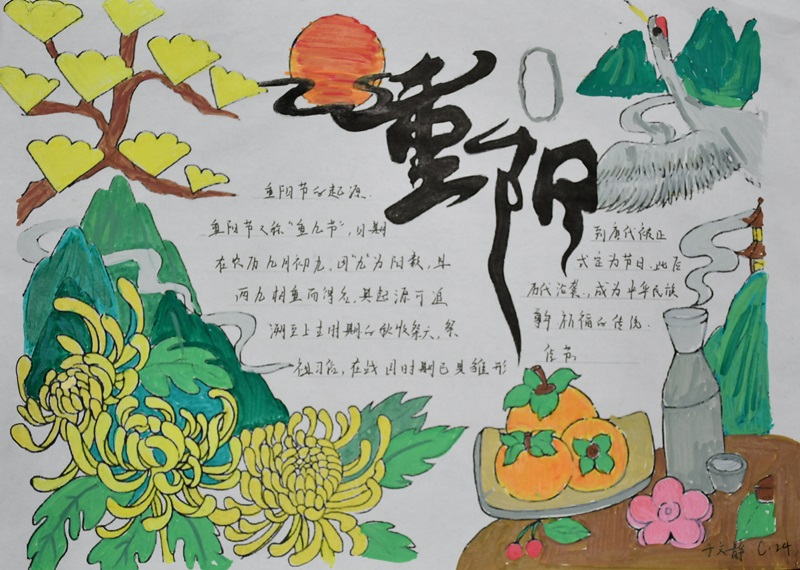 重阳
重阳节的起源
重阳节又称“重九节”,日期
在农历九月初九,因“九”为阳数,且
两九相重而得名,其起源可追
溯至上古时期的秋收祭天、祭
祖习俗,在战国时期已具雏形
到唐代被正
式定为节日,此后
历代沿袭,成为中华民族
祈福的传统
佳节
于文静 C.24